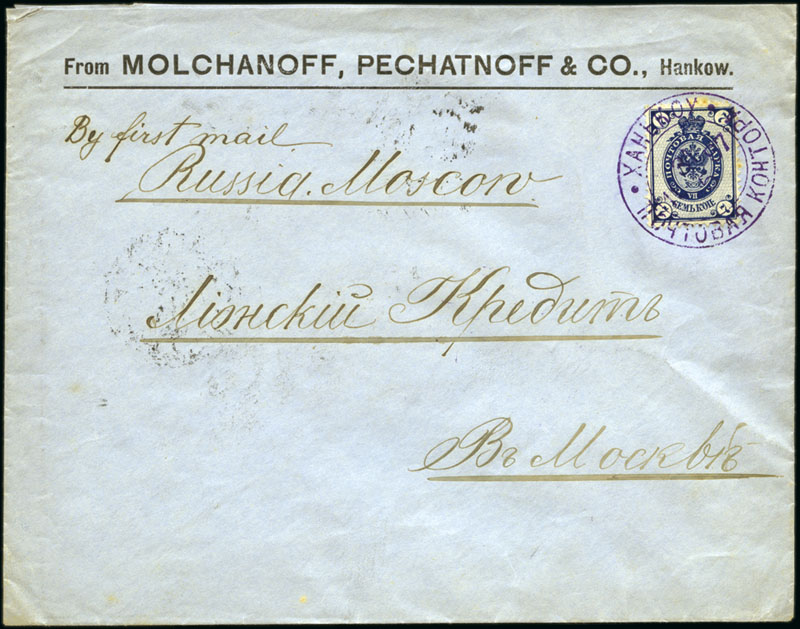 From MOLCHANOFF, PECHATNOFF & CO., Hankow.
By first mail
Russia. Moscow
Ліжскій Кредитъ
Въ Москвѣ
ХАНЬКОУ
ПОЧТОВАЯ КОНТОРА
7 7
ПОЧТОВАЯ МАРКА
VII
СЕМЬ КОП.
7 7